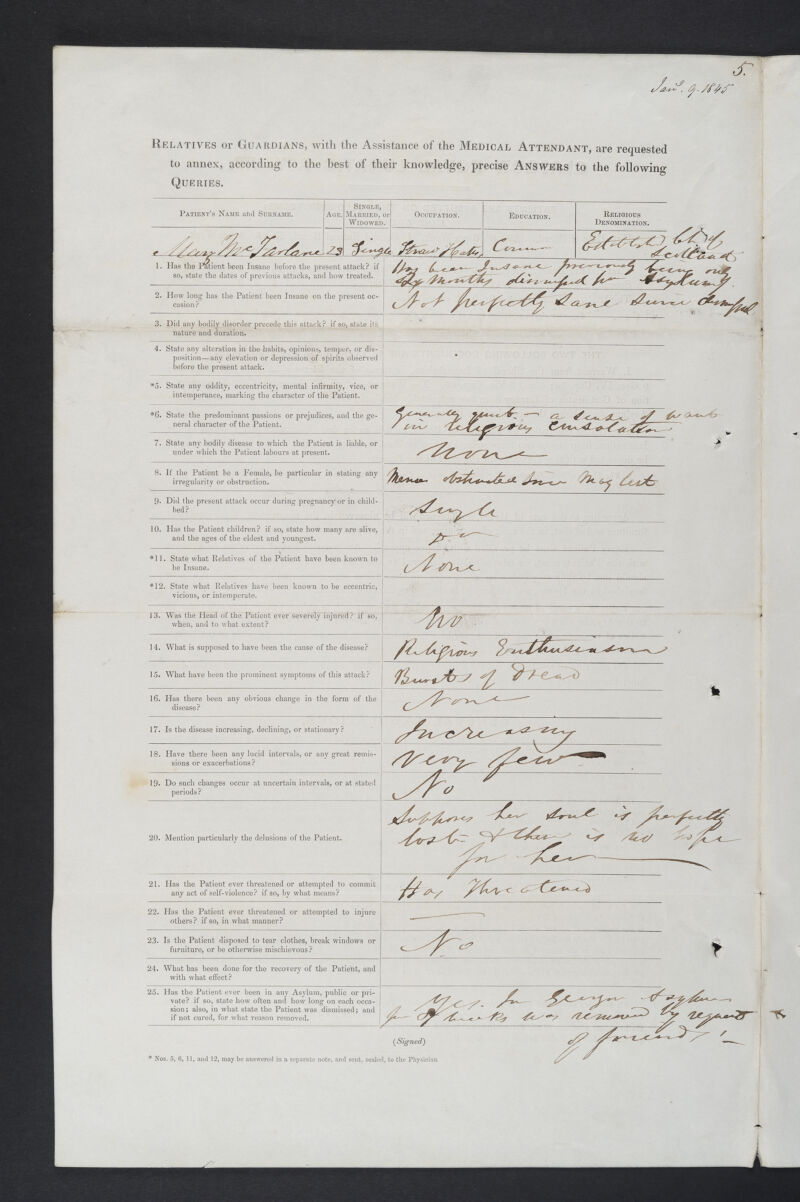 5.
Jany. 9. 1845
RELATIVES or GUARDIANS, with the Assistance of the MEDICAL ATTENDANT, are requested
to annex, according to the best of their knowledge, precise ANSWERS to the following
QUERIES.
PATIENT'S NAME and SURNAME. AGE. SINGLE, MARRIED, or WIDOWED. OCCUPATION. EDUCATION. RELIGIOUS DENOMINATION.
Mary McFarlane 23 Single Straw Hats Common Establishd Ch. of
Scotland
1. Has the Patient been Insane before the present attack? if
so, state the dates of previous attacks, and how treated.
Has been Insane previously being only
Six Months dismissed from Asylum
2. How long has the Patient been Insane on the present oc-
casion?
Not perfectly sane since
3. Did any bodily disorder precede this attack? if so, state its
nature and duration.
4. State any alteration in the habits, opinions, temper, or dis-
position—any elevation or depression of spirits observed
before the present attack.
*5. State any oddity, eccentricity, mental infirmity, vice, or
intemperance, marking the character of the Patient.
*6. State the predominant passions or prejudices, and the ge-
neral character of the Patient.
Generally quiet – a sense of want
in religious consolation
7. State any bodily disease to which the Patient is liable, or
under which the Patient labours at present.
None
8. If the Patient be a Female, be particular in stating any
irregularity or obstruction.
Menses obstructed since May last
9. Did the present attack occur during pregnancy or in child-
bed?
Single
10. Has the Patient children? if so, state how many are alive,
and the ages of the eldest and youngest.
Do
*11. State what Relatives of the Patient have been known to
be Insane.
None
*12. State what Relatives have been known to be eccentric,
vicious, or intemperate.
13. Was the Head of the Patient ever severely injured? if so,
when, and to what extent?
No
14. What is supposed to have been the cause of the disease?
Religious Enthusiasm
15. What have been the prominent symptoms of this attack?
Bursts of Dread
16. Has there been any obvious change in the form of the
disease?
None
17. Is the disease increasing, declining, or stationary?
Increasing
18. Have there been any lucid intervals, or any great remis-
sions or exacerbations?
Very few
19. Do such changes occur at uncertain intervals, or at stated
periods?
No
20. Mention particularly the delusions of the Patient.
Supposes her soul is perfectly
lost & there is no hope
for her
21. Has the Patient ever threatened or attempted to commit
any act of self-violence? if so, by what means?
Has Threatened
22. Has the Patient ever threatened or attempted to injure
others? if so, in what manner?
—
23. Is the Patient disposed to tear clothes, break windows or
furniture, or be otherwise mischievous?
No
24. What has been done for the recovery of the Patient, and
with what effect?
25. Has the Patient ever been in any Asylum, public or pri-
vate? if so, state how often and how long on each occa-
sion; also, in what state the Patient was dismissed; and
if not cured, for what reason removed.
Yes. In Asylum
for weeks was removed by request
of friends! –
(Signed)
* Nos. 5, 6, 11, and 12, may be answered in a separate note, and sent, sealed, to the Physician